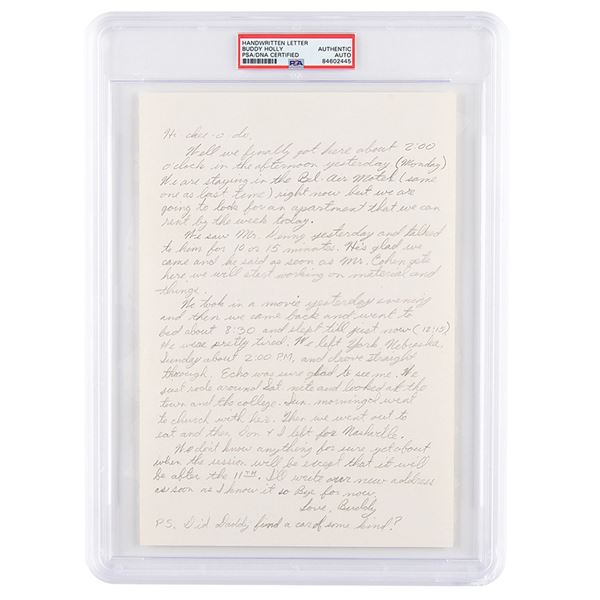 HANDWRITTEN LETTER
BUDDY HOLLY
PSA/DNA CERTIFIED
AUTHENTIC
AUTO
84602445
PSA
Hi-dee-o-do,
Well we finally got here about 2:00
o'clock in the afternoon yesterday (Monday)
We are staying in the Bel-Air Motel (same
one as last time) right now but we are
going to look for an apartment that we can
rent by the week today.
We saw Mr. Denny yesterday and talked
to him for 10 or 15 minutes. He's glad we
came and he said as soon as Mr. Cohen gets
here we will start working on material and
things.
We took in a movie yesterday evening
and then we came back and went to
bed about 8:30 and slept till just now (12:15)
We were pretty tired. We left York, Nebraska,
Sunday about 2:00 PM, and drove straight
through. Echo was sure glad to see me. We
just rode around Sat. nite and looked at the
town and the college. Sun. morning I went
to church with her. Then we went out to
eat and then Don + I left for Nashville.
We don't know anything for sure yet about
when the session will be except that it will
be after the 11th. I'll write our new address
as soon as I know it so Bye for now.
Love, Buddy
P.S. Did Daddy find a car of some kind?